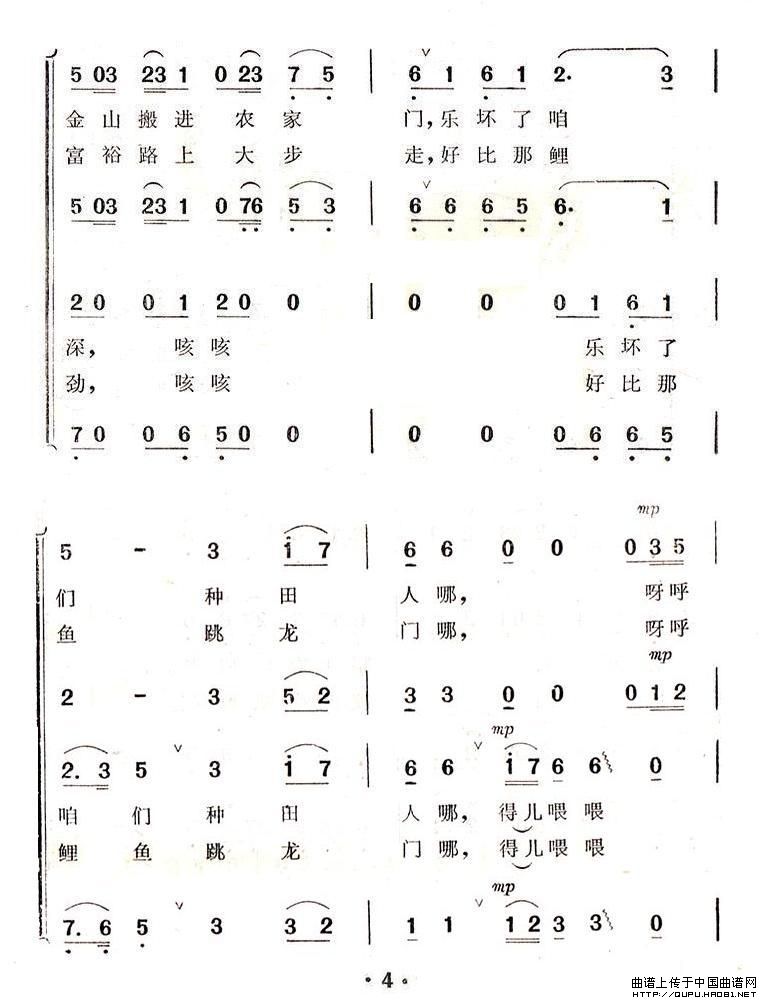 5 03 23 1 0 23 7 5 | 6 1 6 1 2. 3
金山搬进 农家 门,乐坏了咱
富裕路上 大步 走,好比那鲤
5 03 23 1 0 76 5 3 | 6 6 6 5 6. 1
2 0 0 1 2 0 0 | 0 0 0 1 6 1
深, 咳咳 乐坏了
劲, 咳咳 好比那
7 0 0 6 5 0 0 | 0 0 0 6 6 5
mp
5 - 3 1 7 | 6 6 0 0 0 3 5
们 种田 人哪, 呀呼
鱼 跳龙 门哪, 呀呼
mp
2 - 3 5 2 | 3 3 0 0 0 1 2
mp
2. 3 5 3 1 7 | 6 6 1 7 6 6 0
咱们种田 人哪,得儿喂喂
鲤鱼跳龙 门哪,得儿喂喂
mp
7. 6 5 3 3 2 | 1 1 1 2 3 3 0
· 4 ·
曲谱上传于中国曲谱网
HTTP://QUPU.HAO81.NET